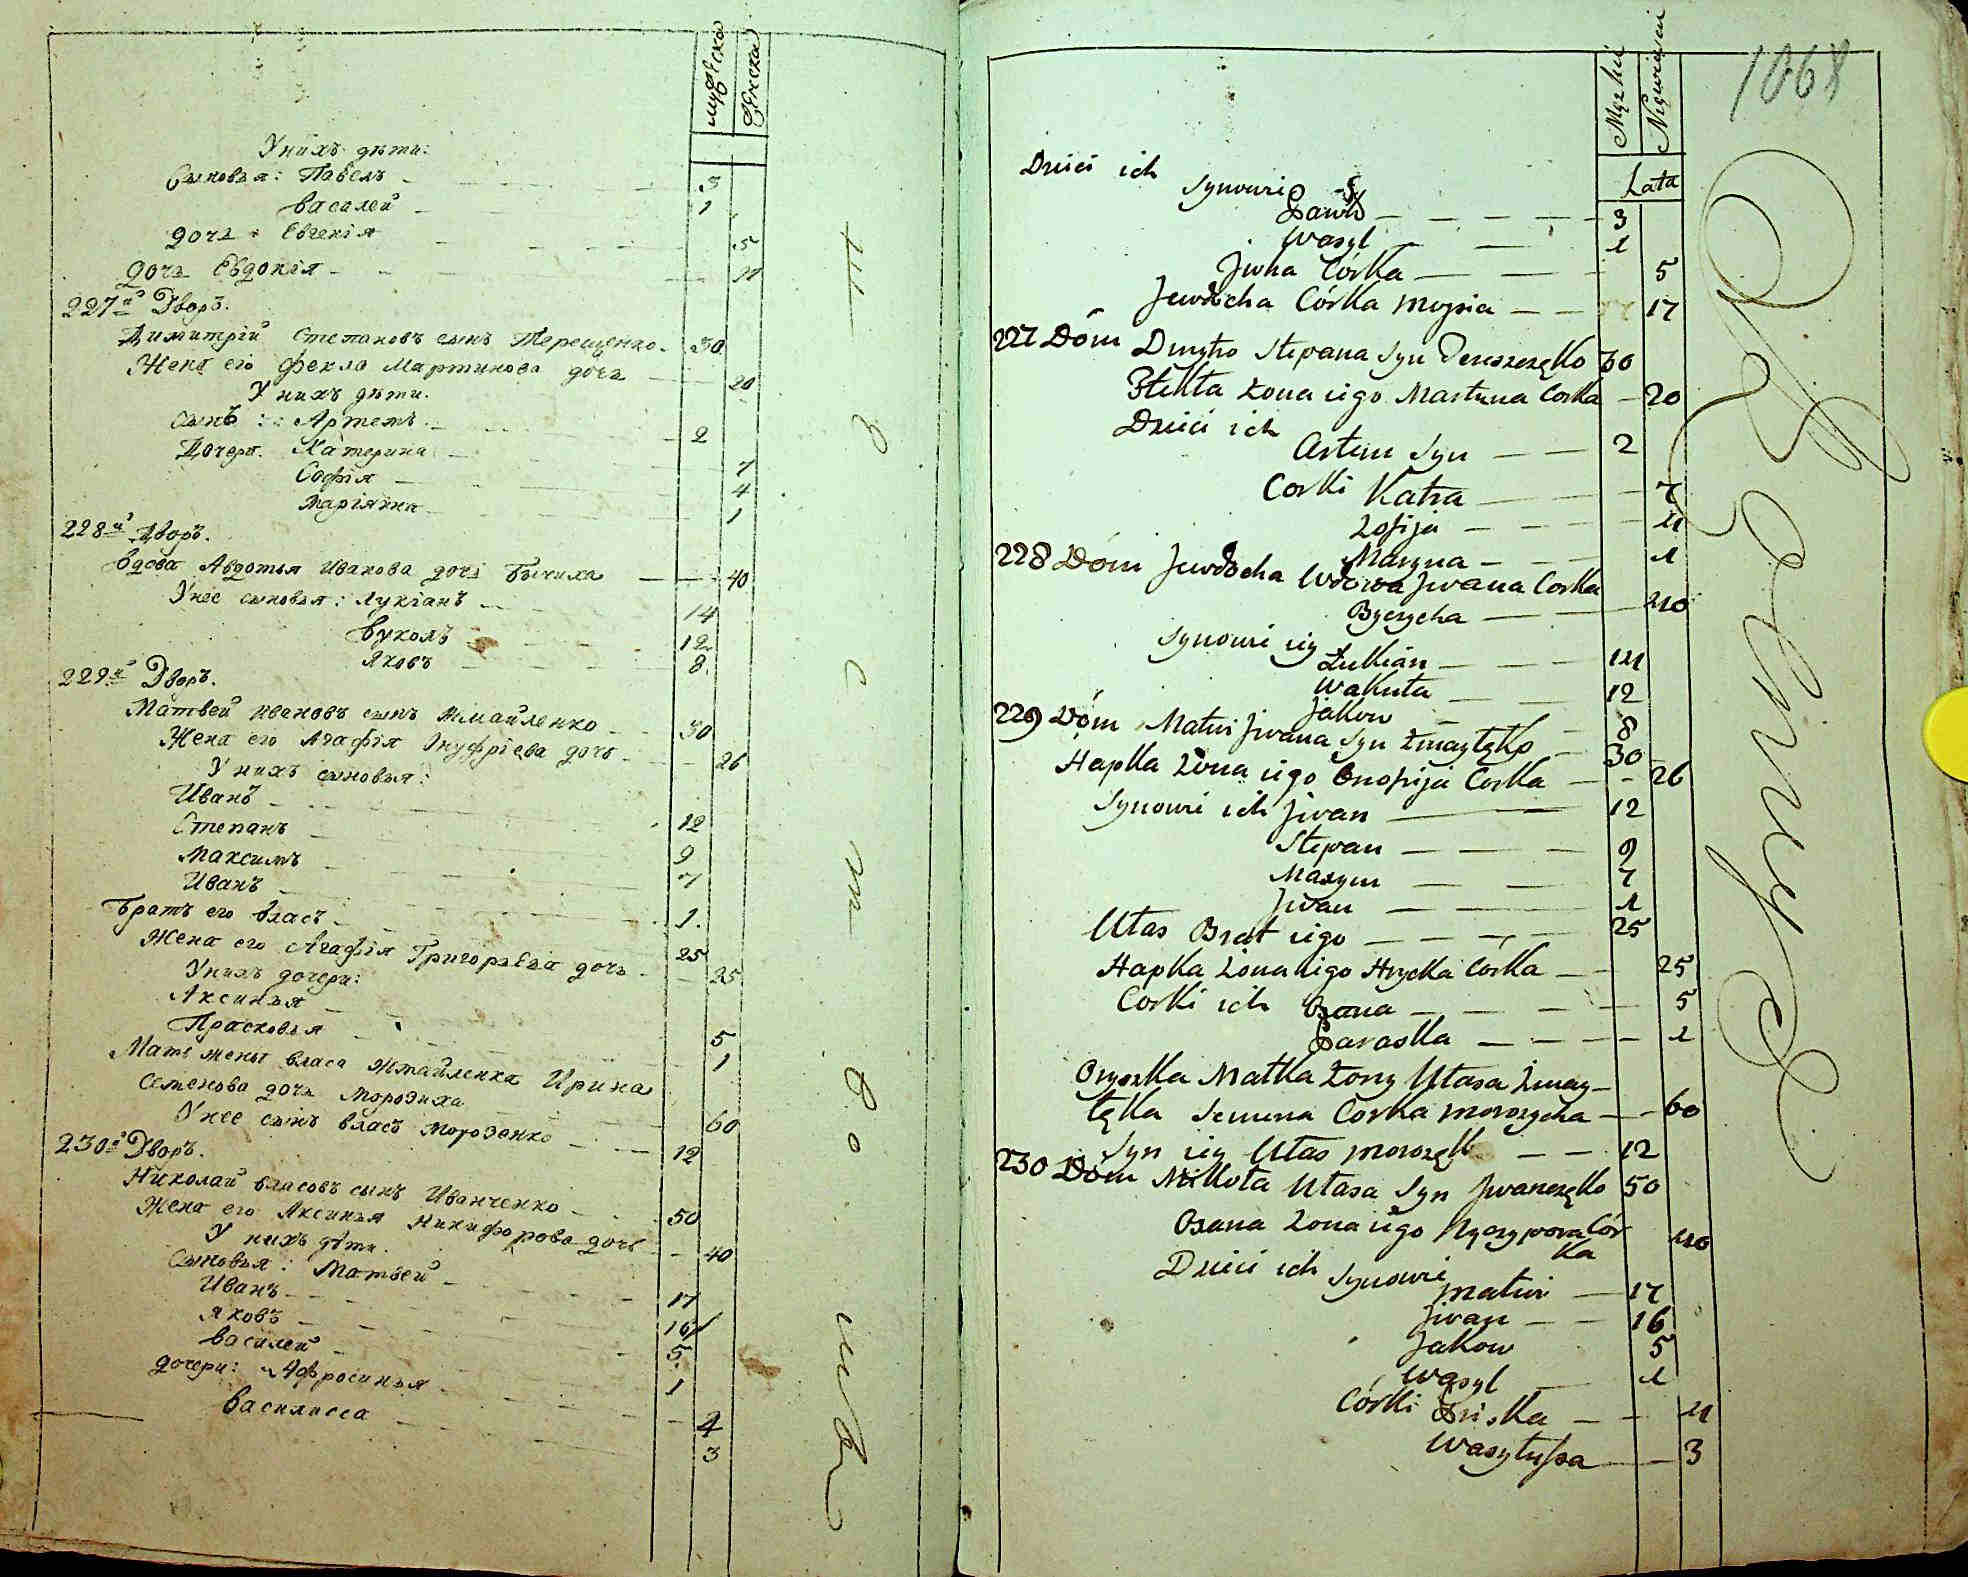 мужеска женска
У нихъ дѣти:
Сыновья: Павелъ 3
Василей 1
дочь Евгенія 5
дочь Евдокія 17
227й Дворъ.
Димитрій Степановъ сынъ Терещенко 30
Жена его Фекла Мартинова дочь 20
У нихъ дѣти.
сынъ: Артемъ 2
Дочери. Катерина 7
Софія 4
Маріянна 1
228й Дворъ.
Вдова Авдотья Иванова дочь Бычиха 40
У нее сыновья: Лукіанъ 14
Вуколъ 12
Яковъ 8
229й Дворъ.
Матвей Ивановъ сынъ Жмайленко 30
Жена его Агафія Онуфріева дочь 26
У нихъ сыновья:
Иванъ 12
Степанъ 9
Максимъ 7
Иванъ 1
Братъ его Власъ 25
Жена его Агафія Григорьева дочь 25
У нихъ дочери:
Аксинья 5
Прасковья 1
Мать жены Власа Жмайленка Ирина
Семенова дочь Морозиха 60
У нее сынъ Власъ Морозенко 12
230й Дворъ.
Николай Власовъ сынъ Иванченко 50
Жена его Аксинья Никифорова дочь 40
У нихъ дѣти.
Сыновья: Матвей 17
Иванъ 16
Яковъ 5
Василей 1
дочери: Афросинья 4
Василисса 3
1068
Męzkiej Niewieściej
Lata
Dzieci ich
Synowie Pawło 3
Wasyl 1
Jiwha Córka 5
Jewdocha Córka Moysia 17
227 Dóm Dmytro Stepana Syn Tereszczęko 30
Thekła Żona iego Martyna Corka 20
Dzieci ich
Artem Syn 2
Corki Katra 7
Zofija 4
Maryna 1
228 Dóm Jewdocha Wdowa Jwana Corka
Byczycha 40
Synowie iey Łukian 14
Wakuła 12
Jakow 8
229 Dóm Matwi Jwana Syn Żmayłęko 30
Hapka Żona iego Onofrija Corka 26
Synowie ich Jwan 12
Stepan 9
Maxym 7
Jwan 1
Ułas Brat iego 25
Hapka Żona iego Hrycka Córka 25
Corki ich Oxana 5
Paraska 1
Oryszka Matka Żony Ułasa Żmay-
łęka Semena Corka Morozycha 60
Syn iey Ułas Morozęk 12
230 Dóm Mikoła Ułasa Syn Jwanczęko 50
Oxana Żona iego Nyczypora Cór
ka 40
Dzieci ich Synowie Matwi 17
Jwan 16
Jakow 5
Wasyl 1
Córki Priska 4
Wasyłyssa 3